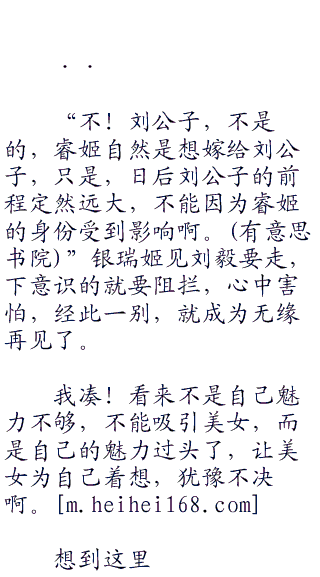 . .
“不！刘公子，不是
的，睿姬自然是想嫁给刘公
子，只是，日后刘公子的前
程定然远大，不能因为睿姬
的身份受到影响啊。(有意思
书院)”银瑞姬见刘毅要走，
下意识的就要阻拦，心中害
怕，经此一别，就成为无缘
再见了。
我凑！看来不是自己魅
力不够，不能吸引美女，而
是自己的魅力过头了，让美
女为自己着想，犹豫不决
啊。[m.heihei168.com]
想到这里